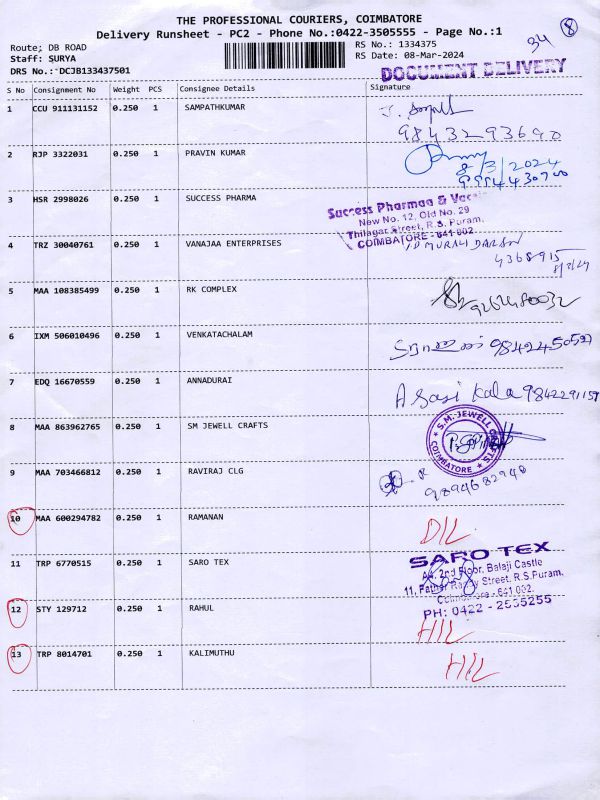 THE PROFESSIONAL COURIERS, COIMBATORE
Delivery Runsheet - PC2 - Phone No.:0422-3505555 - Page No.:1
34 8
Route; DB ROAD
RS No.: 1334375
Staff: SURYA
RS Date: 08-Mar-2024
DRS No.:'DCJB133437501
DOCUMENT DELIVERY
S No Consignment No Weight PCS Consignee Details Signature
1 CCU 911131152 0.250 1 SAMPATHKUMAR
9843293690
2 RJP 3322031 0.250 1 PRAVIN KUMAR
8/3/2024
3 HSR 2998026 0.250 1 SUCCESS PHARMA
Success Pharmaa &
New No. 12, Old No. 29
Thilagar Street, R.S. Puram,
COIMBATORE - 641 002.
4 TRZ 30040761 0.250 1 VANAJAA ENTERPRISES
MURALI DARAN
4368915
8/3/24
5 MAA 108385499 0.250 1 RK COMPLEX
6 IXM 506010496 0.250 1 VENKATACHALAM
7 EDQ 16670559 0.250 1 ANNADURAI
A Sasi Kala 9842291159
8 MAA 863962765 0.250 1 SM JEWELL CRAFTS
S.M. JEWELL CRAFTS
COIMBATORE
9 MAA 703466812 0.250 1 RAVIRAJ CLG
9894682940
10 MAA 600294782 0.250 1 RAMANAN
D/L
11 TRP 6770515 0.250 1 SARO TEX
SARO TEX
2nd Floor, Balaji Castle
11, Father Street, R.S.Puram,
Coimbatore - 641 002.
PH: 0422 - 2535255
12 STY 129712 0.250 1 RAHUL
H/L
13 TRP 8014701 0.250 1 KALIMUTHU
H/L